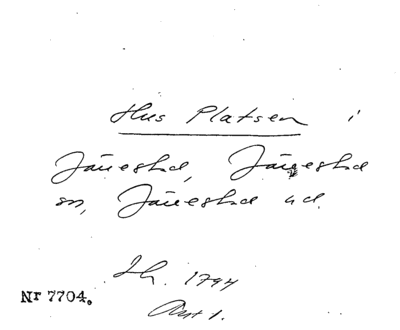 Hus Platsen i
Järestad, Järestad
sn, Järestad hd.
Sk. 1794
Nr 7704.
Akt 1.